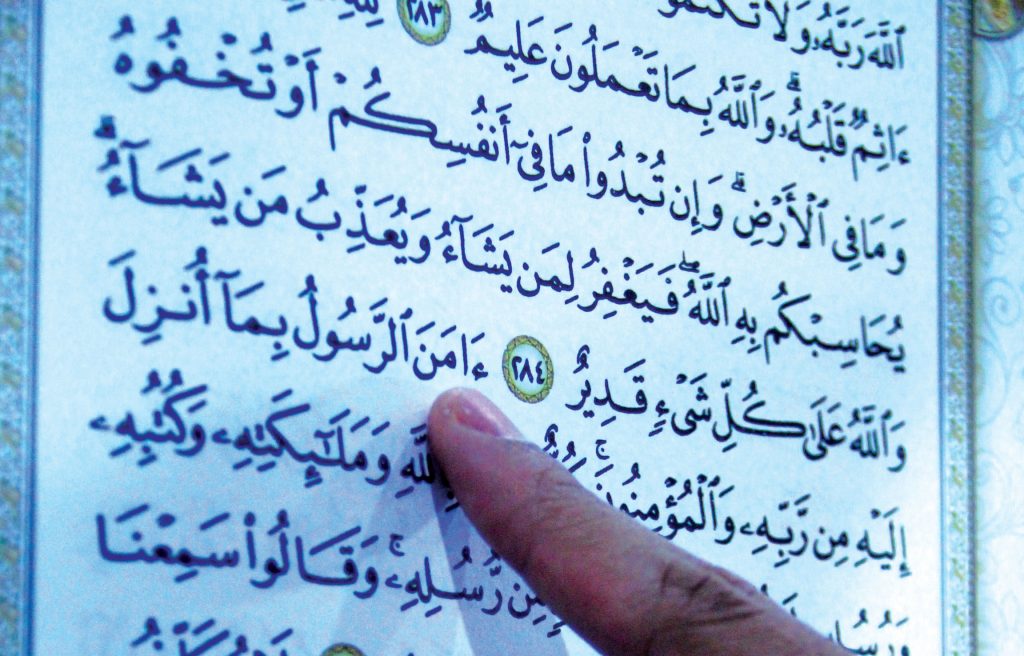 ٱللَّهَ رَبَّهُۥ وَلَا تَكْتُمُوا۟
ءَاثِمٌ قَلْبُهُۥ ۗ وَٱللَّهُ بِمَا تَعْمَلُونَ عَلِيمٌ ٢٨٣ لِلَّهِ
وَمَا فِى ٱلْأَرْضِ ۗ وَإِن تُبْدُوا۟ مَا فِىٓ أَنفُسِكُمْ أَوْ تُخْفُوهُ
يُحَاسِبْكُم بِهِ ٱللَّهُ ۖ فَيَغْفِرُ لِمَن يَشَآءُ وَيُعَذِّبُ مَن يَشَآءُ ۗ
وَٱللَّهُ عَلَىٰ كُلِّ شَىْءٍ قَدِيرٌ ٢٨٤ ءَامَنَ ٱلرَّسُولُ بِمَآ أُنزِلَ
إِلَيْهِ مِن رَّبِّهِۦ وَٱلْمُؤْمِنُونَ ۚ كُلٌّ بِٱللَّهِ وَمَلَـٰٓئِكَتِهِۦ وَكُتُبِهِۦ
مِّن رُّسُلِهِۦ ۚ وَقَالُوا۟ سَمِعْنَا